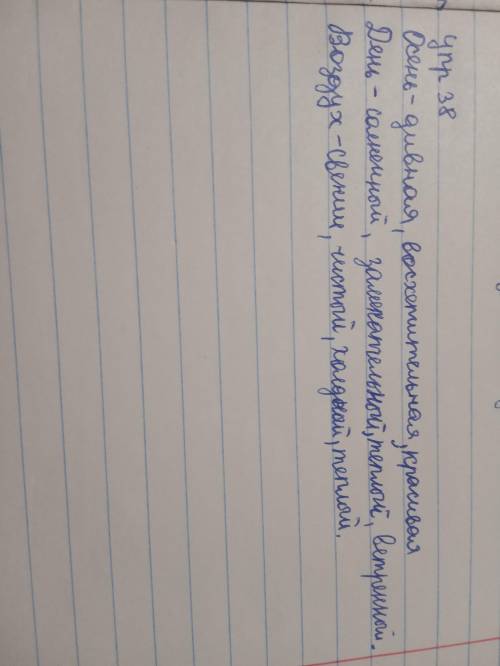 Упр 38
Осень - дивная, восхетительная, красивая
День - солнечный, замечательный, теплый, ветренной.
Воздух - свежий, чистый, холдной, теплой.